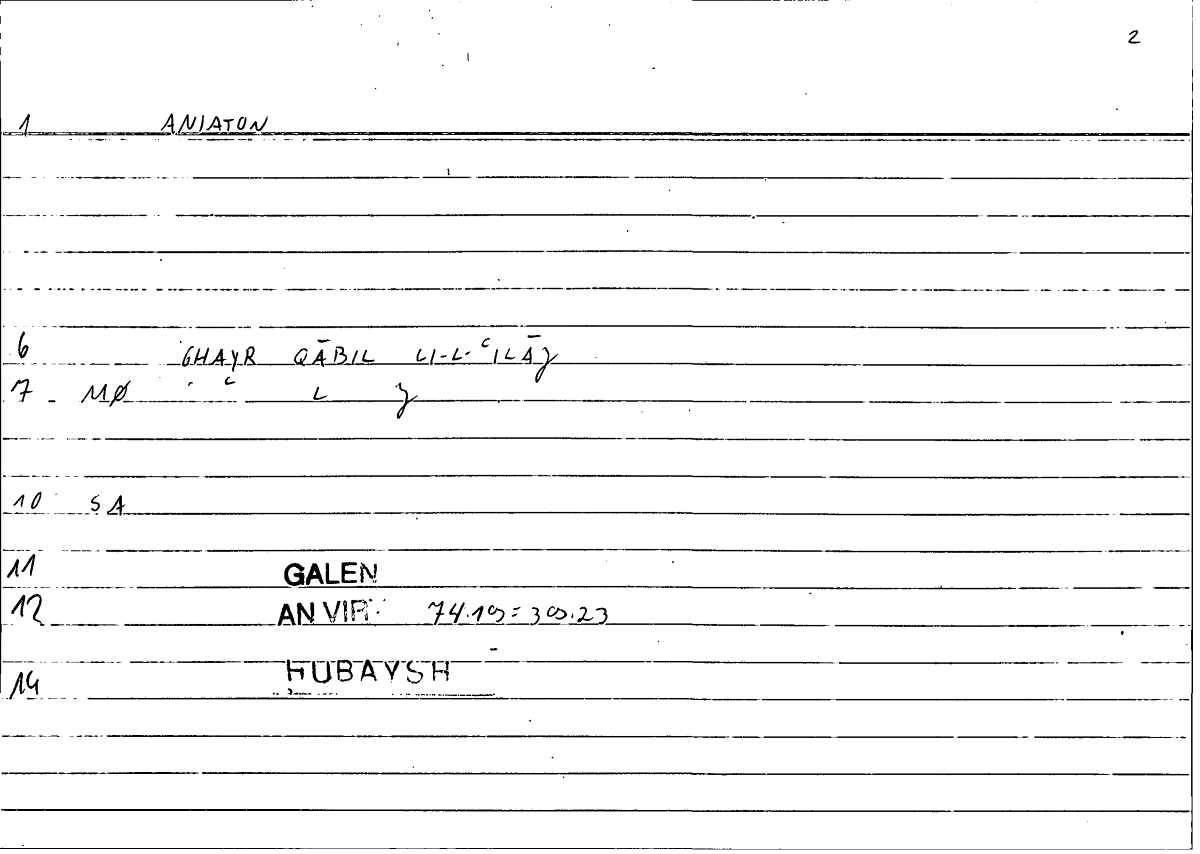 2
1 ANIATON
6 GHAYR QĀBIL LI-L-ʿILĀJ
7 MØ ʿ L J
10 SA
11 GALEN
12 AN VIRT
14 HUBAYSH